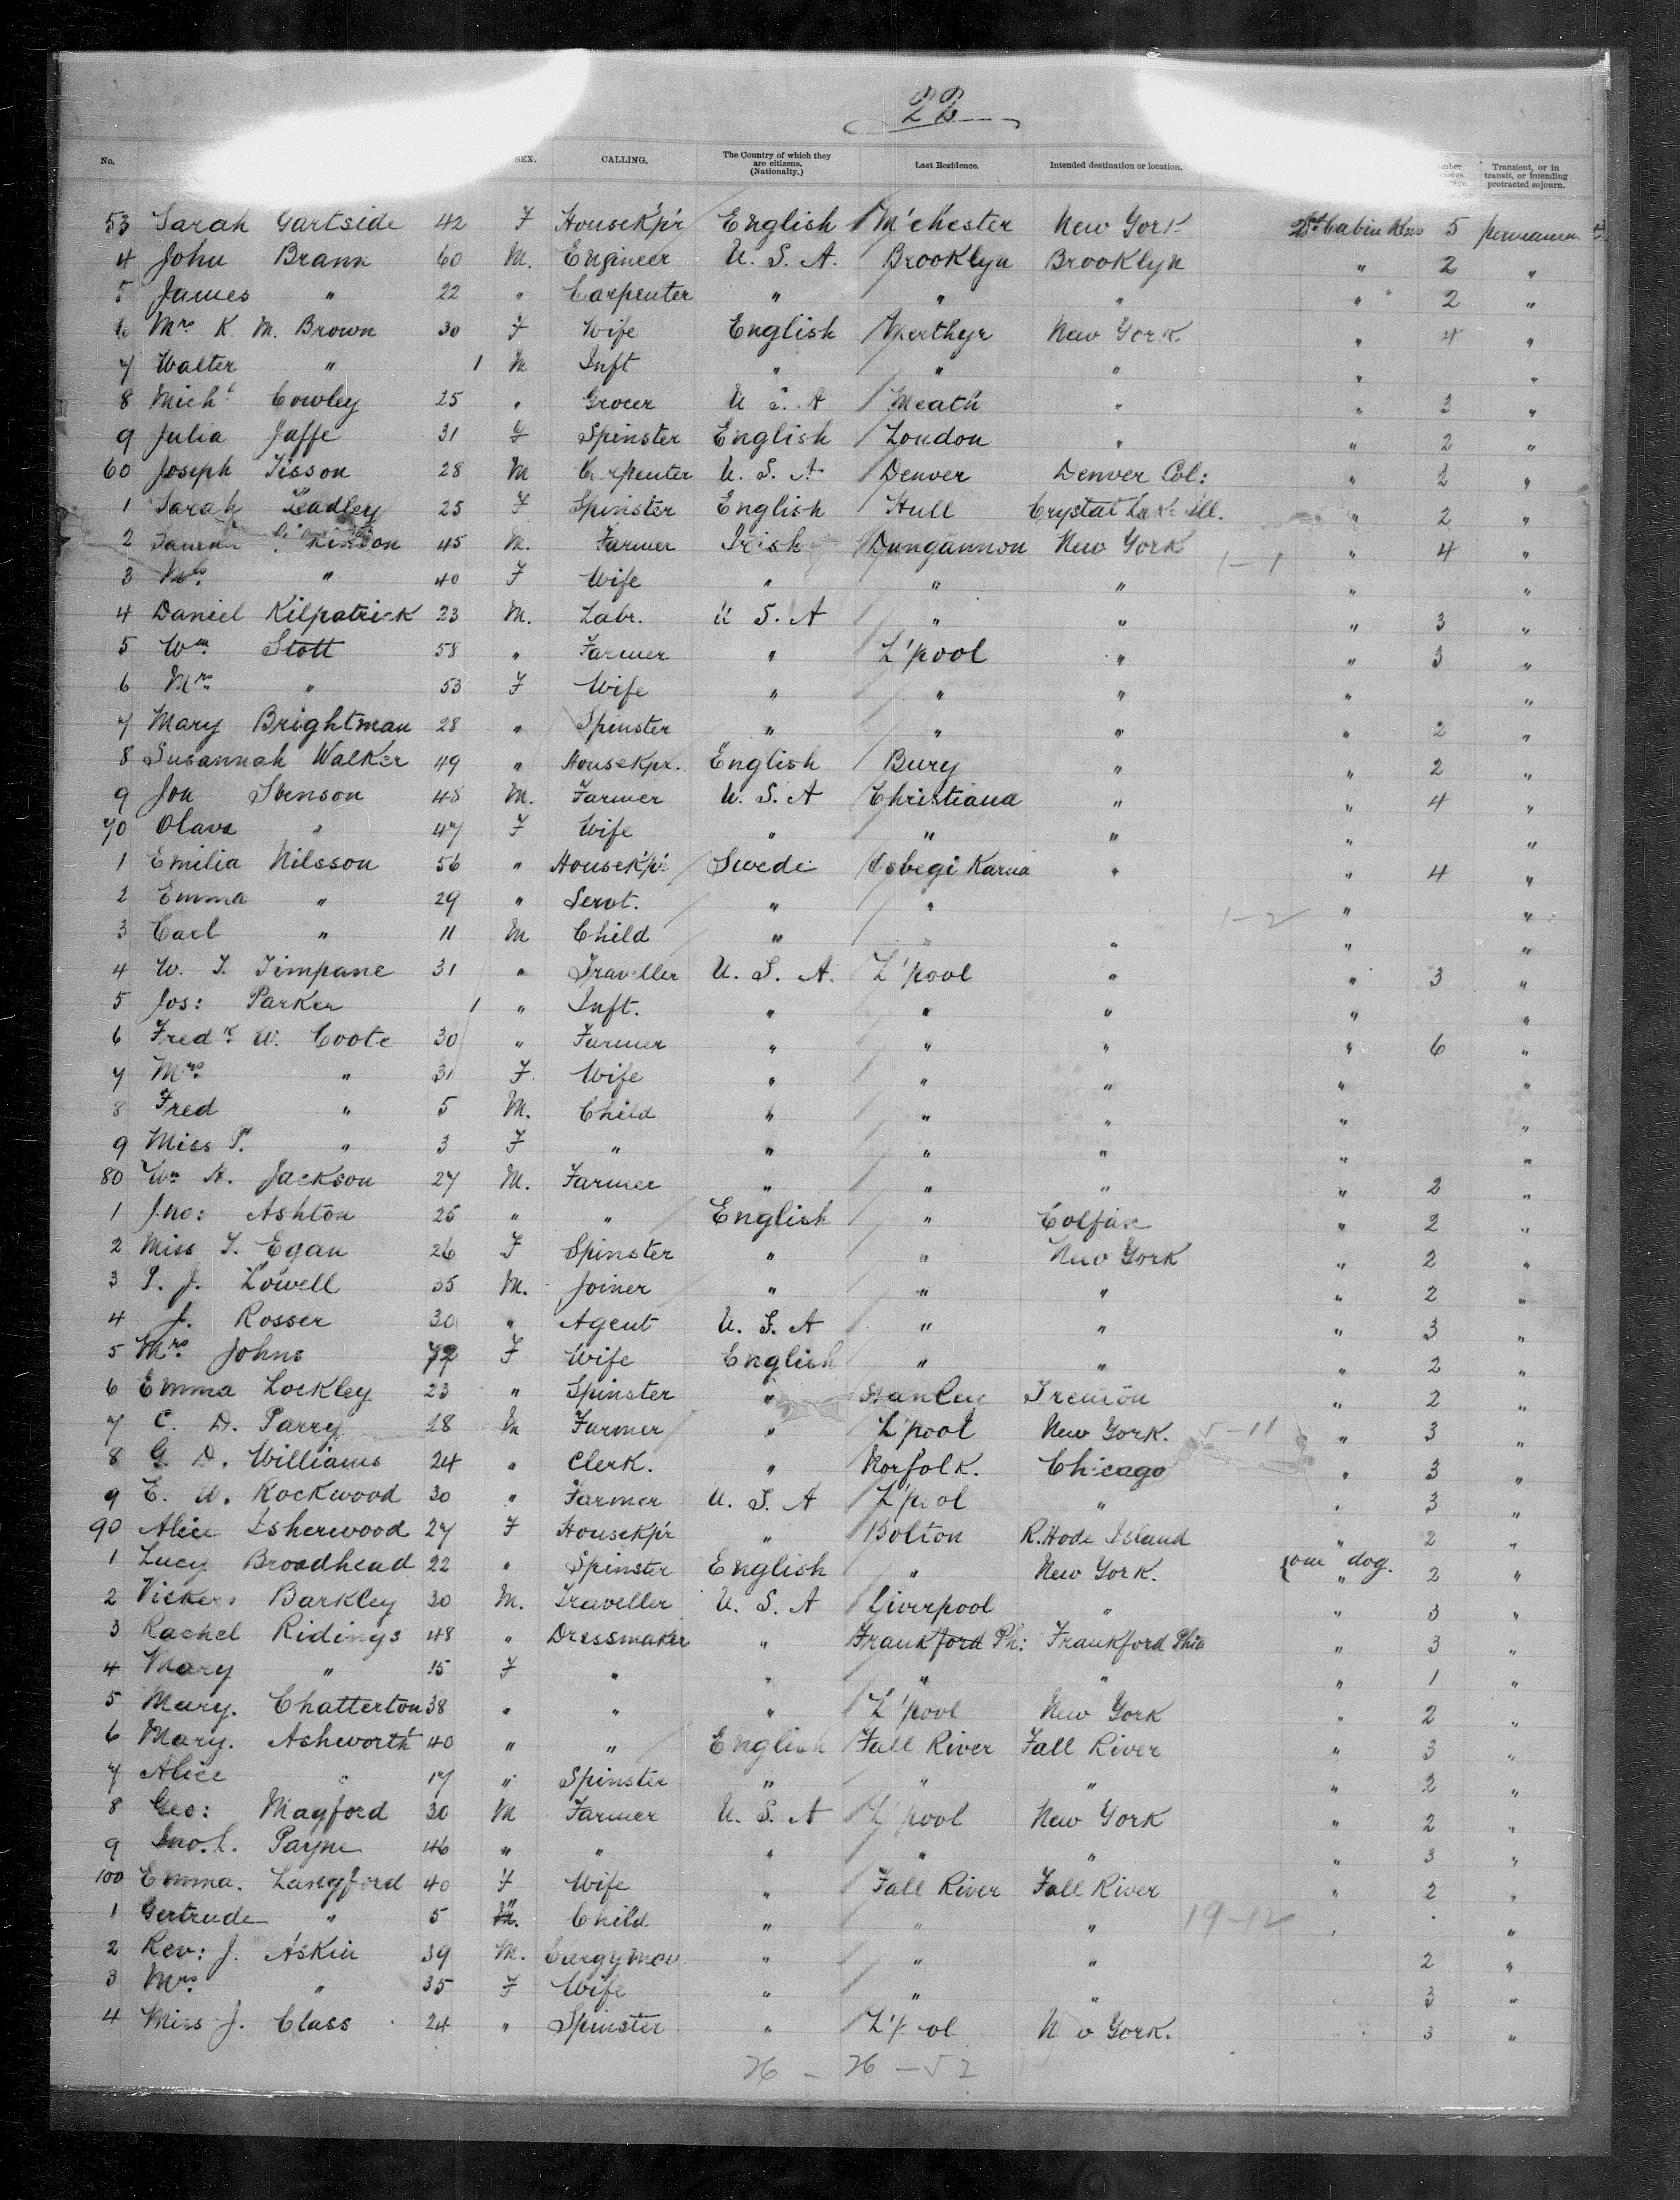 22
No. SEX. CALLING. The Country of which they are citizens. (Nationalty.) Last Residence. Intended destination or location. Transient, or in transit, or intending protracted sojourn.
53 Sarah Gartside 42 F Housek'p'r English M'chester New York 2nd Cabin 5 permanent
4 John Brann 60 M. Engineer U. S. A. Brooklyn Brooklyn " 2 "
5 James " 22 " Carpenter " " " " 2 "
6 Mrs K. M. Brown 30 F Wife English Merthyr New York " 4 "
7 Walter " 1 M Inft " " " " "
8 Michl Cowley 25 " Grocer U S. A Meath " " 3 "
9 Julia Jaffe 31 F Spinster English London " " 2 "
60 Joseph Tisson 28 M Carpenter U. S. A Denver Denver Col: " 2 "
1 Sarah Leadley 25 F Spinster English Hull Crystal Lake Ill. " 2 "
2 45 M. Farmer Irish Dungannon New York 1-1 " 4 "
3 Mrs " 40 F Wife " " " " "
4 Daniel Kilpatrick 23 M. Labr. U S. A " " " 3 "
5 Wm Stott 58 " Farmer " L'pool " " 3 "
6 Mrs " 53 F Wife " " " " "
7 Mary Brightman 28 " Spinster " " " " 2 "
8 Susannah Walker 49 " Housekpr. English Bury " " 2 "
9 Jon Svenson 48 M. Farmer U. S. A Christiana " " 4 "
70 Olava " 47 F Wife " " " " "
1 Emilia Nilsson 56 " Housek'p'r Swede Karna " " 4 "
2 Emma " 29 " Servt. " " 1-2 " "
3 Carl " 11 M Child " " " " "
4 W. T. Timpane 31 " Traveller U. S. A. L'pool " " 3 "
5 Jos: Parker 1 " Inft. " " " " "
6 Fredk W. Coote 30 " Farmer " " " " 6 "
7 Mrs " 31 F. Wife " " " " "
8 Fred " 5 M. Child " " " " "
9 Miss P. " 3 F " " " " " "
80 Wm H. Jackson 27 M. Farmer " " " " 2 "
1 Jno: Ashton 25 " " English " Colfax " 2 "
2 Miss T. Egan 26 F Spinster " " New York " 2 "
3 P. J. Lowell 35 M. Joiner " " " " 2 "
4 J. Rosser 30 " Agent U. S. A " " " 3 "
5 Mrs Johns 72 F Wife English " " " 2 "
6 Emma Lockley 23 " Spinster " Stanley " 2 "
7 C. D. Parry 28 M Farmer " L'pool New York. 5-11 " 3 "
8 G. D. Williams 24 " Clerk. " Norfolk. Chicago " 3 "
9 E. W. Rockwood 30 " Farmer U. S. A L'pool " " 3 "
90 Alice Isherwood 27 F Housekp'r " Bolton R.Hode Island " 2 "
1 Lucy Broadhead 22 " Spinster English " New York. one dog. " 2 "
2 Vickers Barkley 30 M. Traveller U. S. A Liverpool " " 3 "
3 Rachel Ridings 48 " Dressmaker " Frankford Ph: Frankford Phia " 3 "
4 Mary " 15 F " " " " " 1 "
5 Mary. Chatterton 38 " " " L'pool New York " 2 "
6 Mary. Ashworth 40 " " English Fall River Fall River " 3 "
7 Alice " 17 " Spinster " " " " 2 "
8 Geo: Mayford 30 M Farmer U. S. A L'pool New York " 2 "
9 Jno. L. Payne 46 " " " " " " 3 "
100 Emma. Langford 40 F Wife " Fall River Fall River " 2 "
1 Gertrude " 5 " Child " " " 19-12 " "
2 Rev: J. Askin 39 M. Clergyman " " " 2 "
3 Mrs " 35 F Wife " " " 3 "
4 Miss J. Class 24 " Spinster " L'pool New York. 3 "
26 - 26 - 52